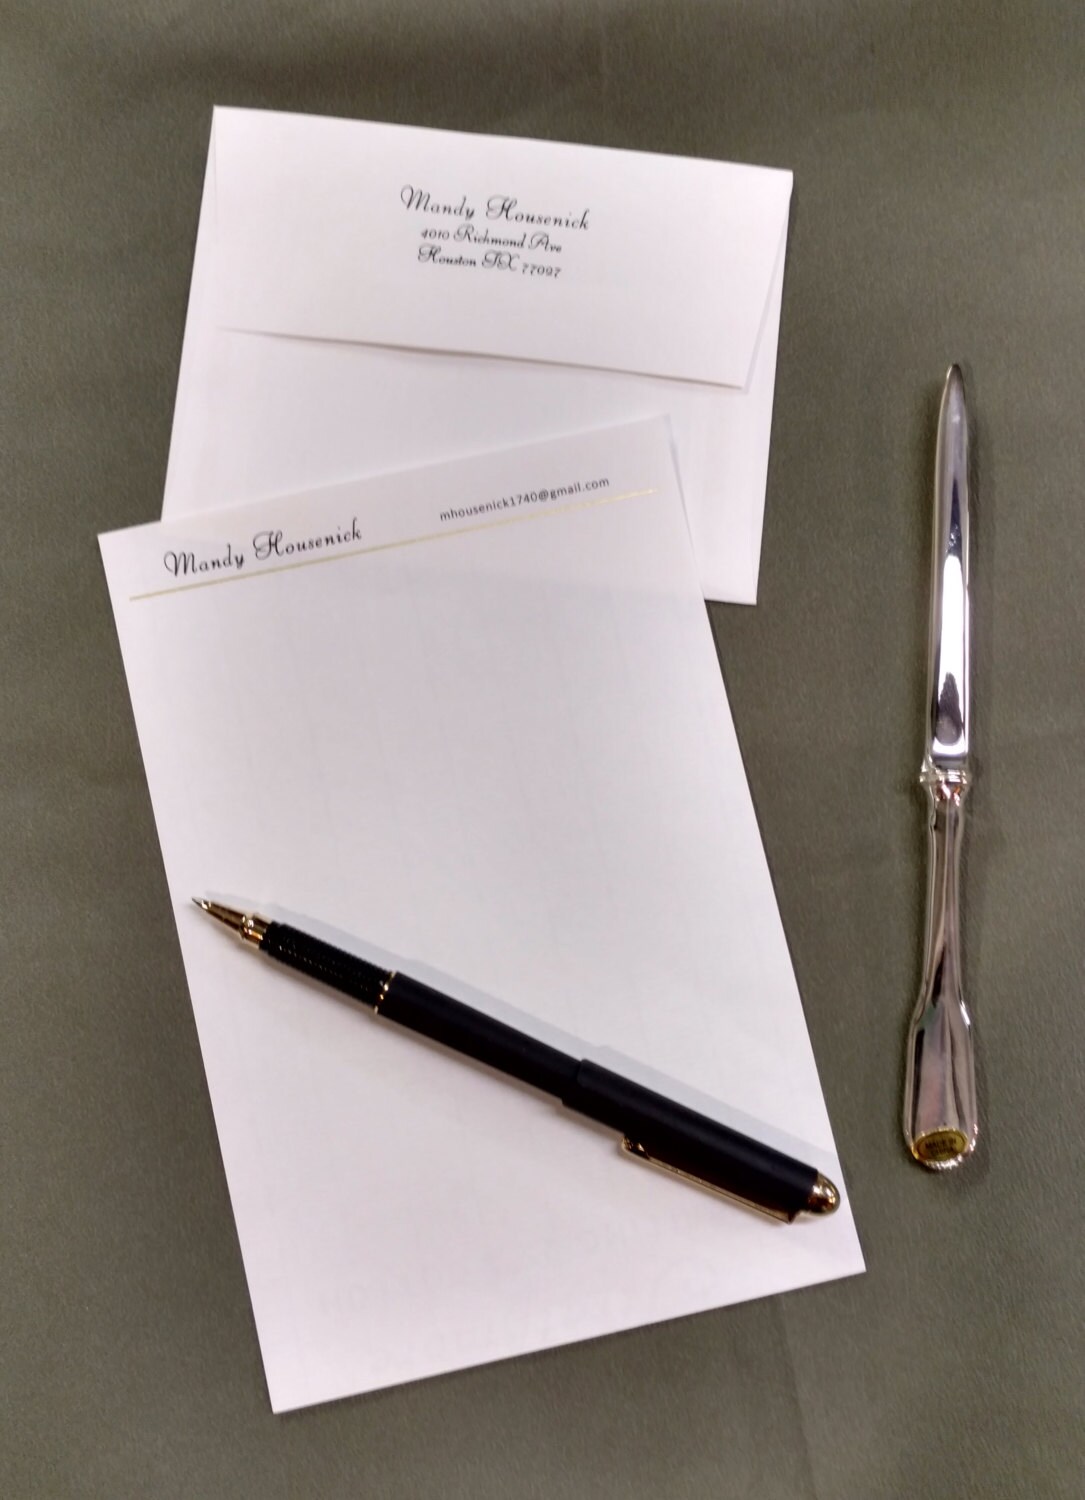 Mandy Housenick
4010 Richmond Ave
Houston TX 77097
Mandy Housenick
mhousenick1740@gmail.com